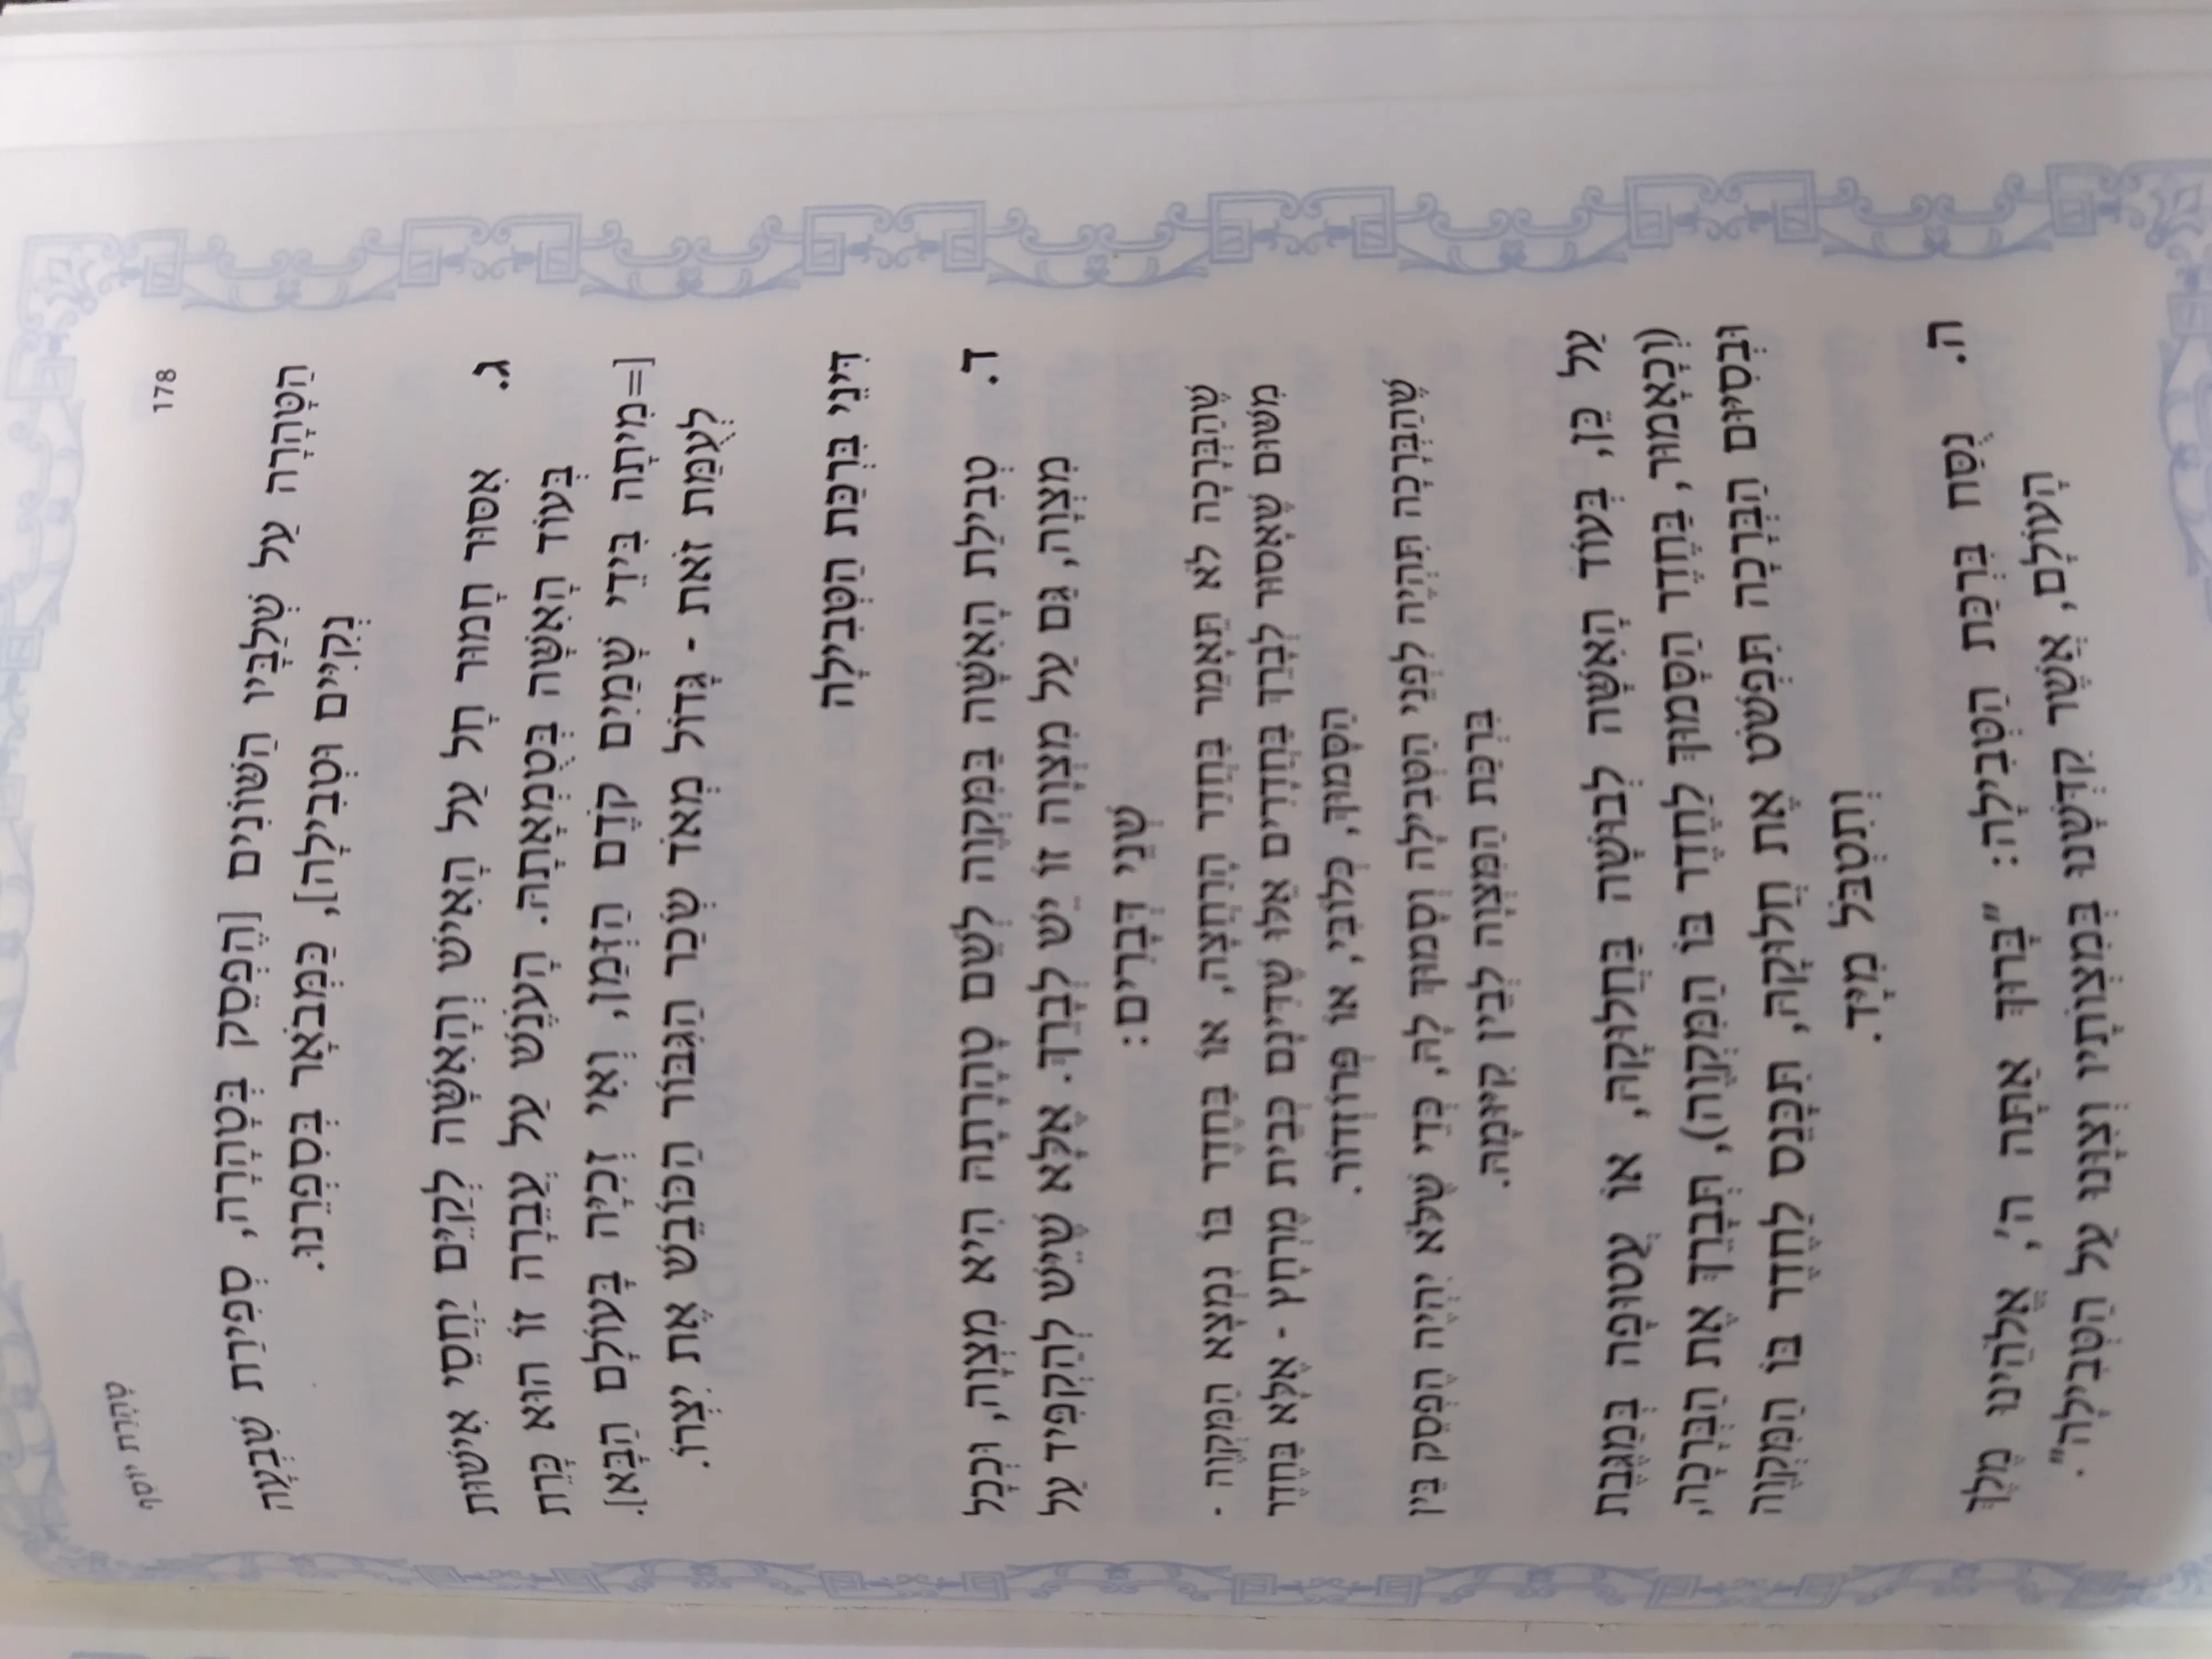 178
טָהֳרַת יוֹסֵף
הַטָּהֳרָה עַל שְׁלַבָּיו הַשּׁוֹנִים [הֶפְסֵק בְּטָהֳרָה, סְפִירַת שִׁבְעָה
נְקִיִּים וּטְבִילָה], כַּמְבֹאָר בְּסִפְרֵנוּ.
ג. אִסּוּר חָמוּר חָל עַל הָאִישׁ וְהָאִשָּׁה לְקַיֵּם יַחֲסֵי אִישׁוּת
בְּעוֹד הָאִשָּׁה בְּטֻמְאָתָהּ. הָעֹנֶשׁ עַל עֲבֵרָה זוֹ הוּא כָּרֵת
[=מִיתָה בִּידֵי שָׁמַיִם קֹדֶם הַזְּמַן, וְאִי זְכִיָּה בָּעוֹלָם הַבָּא].
לְעֻמַּת זֹאת - גָּדוֹל מְאֹד שְׂכַר הַגִּבּוֹר הַכּוֹבֵשׁ אֶת יִצְרוֹ.
דִּינֵי בִּרְכַּת הַטְּבִילָה
ד. טְבִילַת הָאִשָּׁה בַּמִּקְוֶה לְשֵׁם טָהֳרָתָהּ הִיא מִצְוָה, וּכְכָל
מִצְוָה, גַּם עַל מִצְוָה זוֹ יֵשׁ לְבָרֵךְ. אֶלָּא שֶׁיֵּשׁ לְהַקְפִּיד עַל
שְׁנֵי דְּבָרִים:
· שֶׁהַבְּרָכָה לֹא תֵּאָמֵר בַּחֲדַר הָרַחְצָה, אוֹ בַּחֶדֶר בּוֹ נִמְצָא הַמִּקְוֶה
מִשּׁוּם שֶׁאָסוּר לְבָרֵךְ בַּחֲדָרִים אֵלּוּ שֶׁדִּינָם כְּבֵית מֶרְחָץ - אֶלָּא בַּחֶדֶר
הַסָּמוּךְ, כְּלוֹבִּי, אוֹ פְּרוֹזְדוֹר.
שֶׁהַבְּרָכָה תִּהְיֶה לִפְנֵי הַטְּבִילָה וְסָמוּךְ לָהּ, כְּדֵי שֶׁלֹּא יִהְיֶה הֶפְסֵק בֵּין
בִּרְכַּת הַמִּצְוָה לְבֵין קִיּוּמָהּ.
עַל כֵּן, בְּעוֹד הָאִשָּׁה לְבוּשָׁה בַּחֲלוּקָהּ, אוֹ עֲטוּפָה בְּמַגֶּבֶת
(וְכָאָמוּר, בַּחֶדֶר הַסָּמוּךְ לַחֶדֶר בּוֹ הַמִּקְוֶה), תְּבָרֵךְ אֶת הַבְּרָכָה,
וּבְסִיּוּם הַבְּרָכָה תִּפְשֹׁט אֶת חֲלוּקָהּ, תִּכָּנֵס לַחֶדֶר בּוֹ הַמִּקְוֶה
וְתִטְבֹּל מִיָּד.
ה. נֻסַּח בִּרְכַּת הַטְּבִילָה: "בָּרוּךְ אַתָּה ה', אֱלֹהֵינוּ מֶלֶךְ
הָעוֹלָם, אֲשֶׁר קִדְּשָׁנוּ בְּמִצְוֹתָיו וְצִוָּנוּ עַל הַטְּבִילָה".